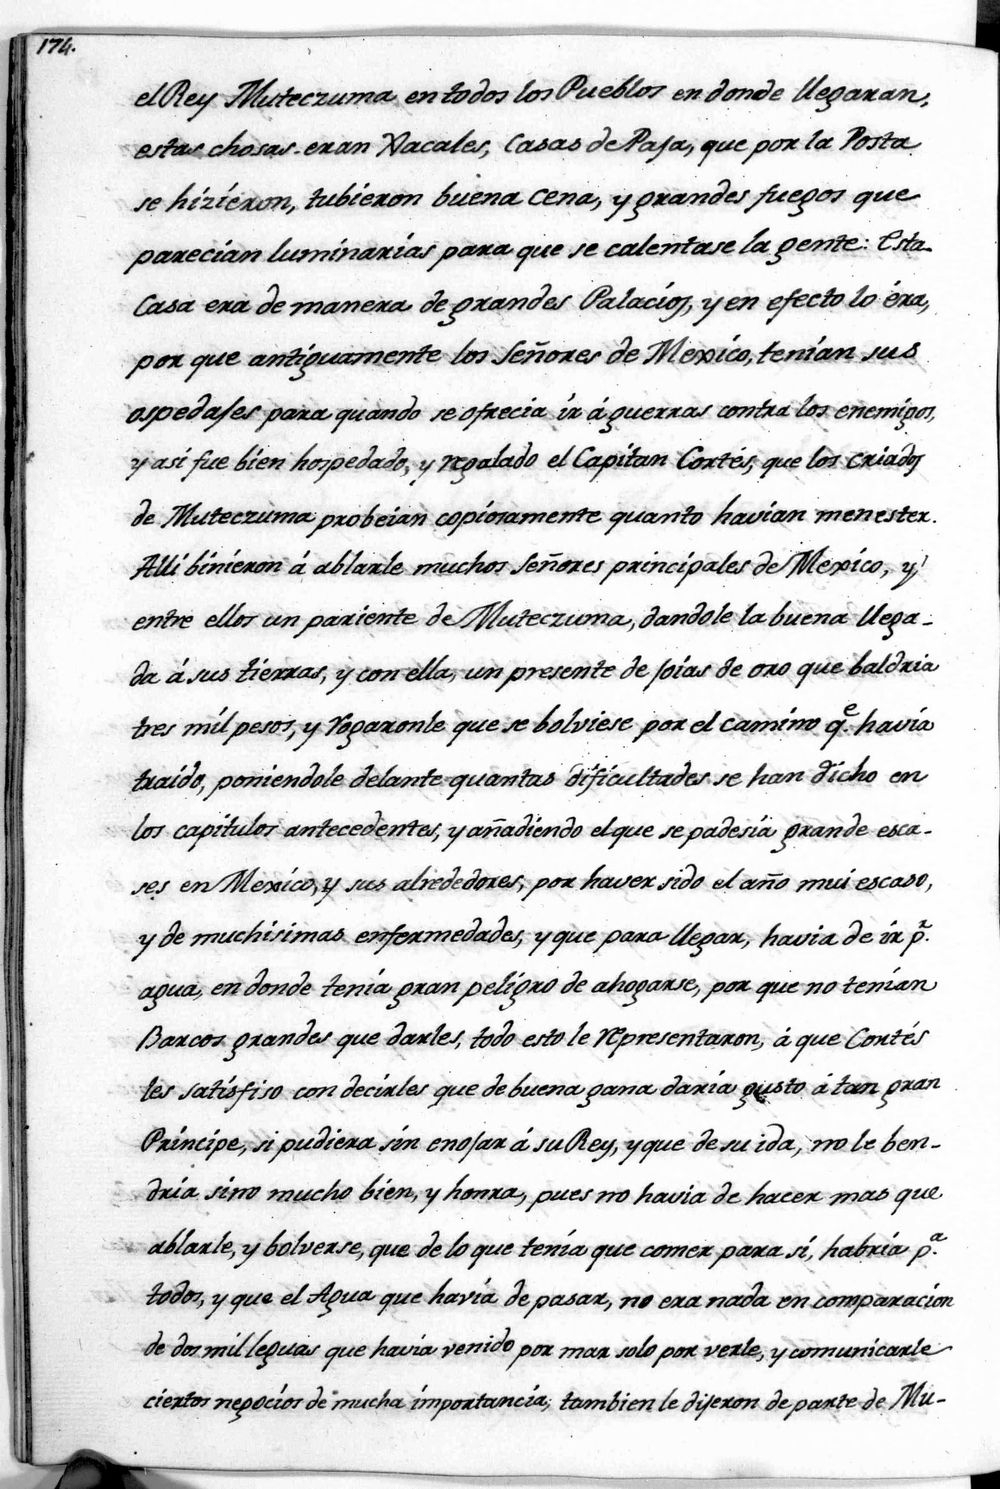 174.
el Rey Muteczuma en todos los Pueblos en donde llegaran,
estas chosas eran Xacales, Casas de Paja, que por la Posta
se hizieron, tubieron buena cena, y grandes fuegos que
parecian luminarias para que se calentase la gente: Esta
Casa era de manera de grandes Palacios, y en efecto lo éra,
por que antiguamente los Señores de Mexico, tenian sus
ospedajes para quando se ofrecia ir á guerras contra los enemigos,
y asi fue bien hospedado, y regalado el Capitan Cortés, que los criados
de Muteczuma probeian copiosamente quanto havian menester.
Alli binieron á ablarle muchos Señores principales de Mexico, y
entre ellos un pariente de Muteczuma, dandole la buena llega-
da á sus tierras, y con ella, un presente de joias de oro que baldria
tres mil pesos, y rogaronle que se bolviese por el camino q.e havia
traido, poniendole delante quantas dificultades se han dicho en
los capitulos antecedentes, y añadiendo el que se padesia grande esca-
ses en Mexico, y sus alrededores, por haver sido el año mui escaso,
y de muchisimas enfermedades, y que para llegar, havia de ir p.r
agua, en donde tenia gran peligro de ahogarse, por que no tenian
Barcos grandes que darles, todo esto le representaron, á que Cortés
les satisfiso con decirles que de buena gana daria gusto á tan gran
Principe, si pudiera sin enojar á su Rey, y que de su ida, no le ben-
dria sino mucho bien, y honra, pues no havia de hacer mas que
ablarle, y bolverse, que de lo que tenia que comer para sí, habria p.a
todos, y que el Agua que havia de pasar, no era nada en comparacion
de dos mil leguas que havia venido por mar solo por verle, y comunicarle
ciertos negocios de mucha importancia; tambien le dijeron de parte de Mu-